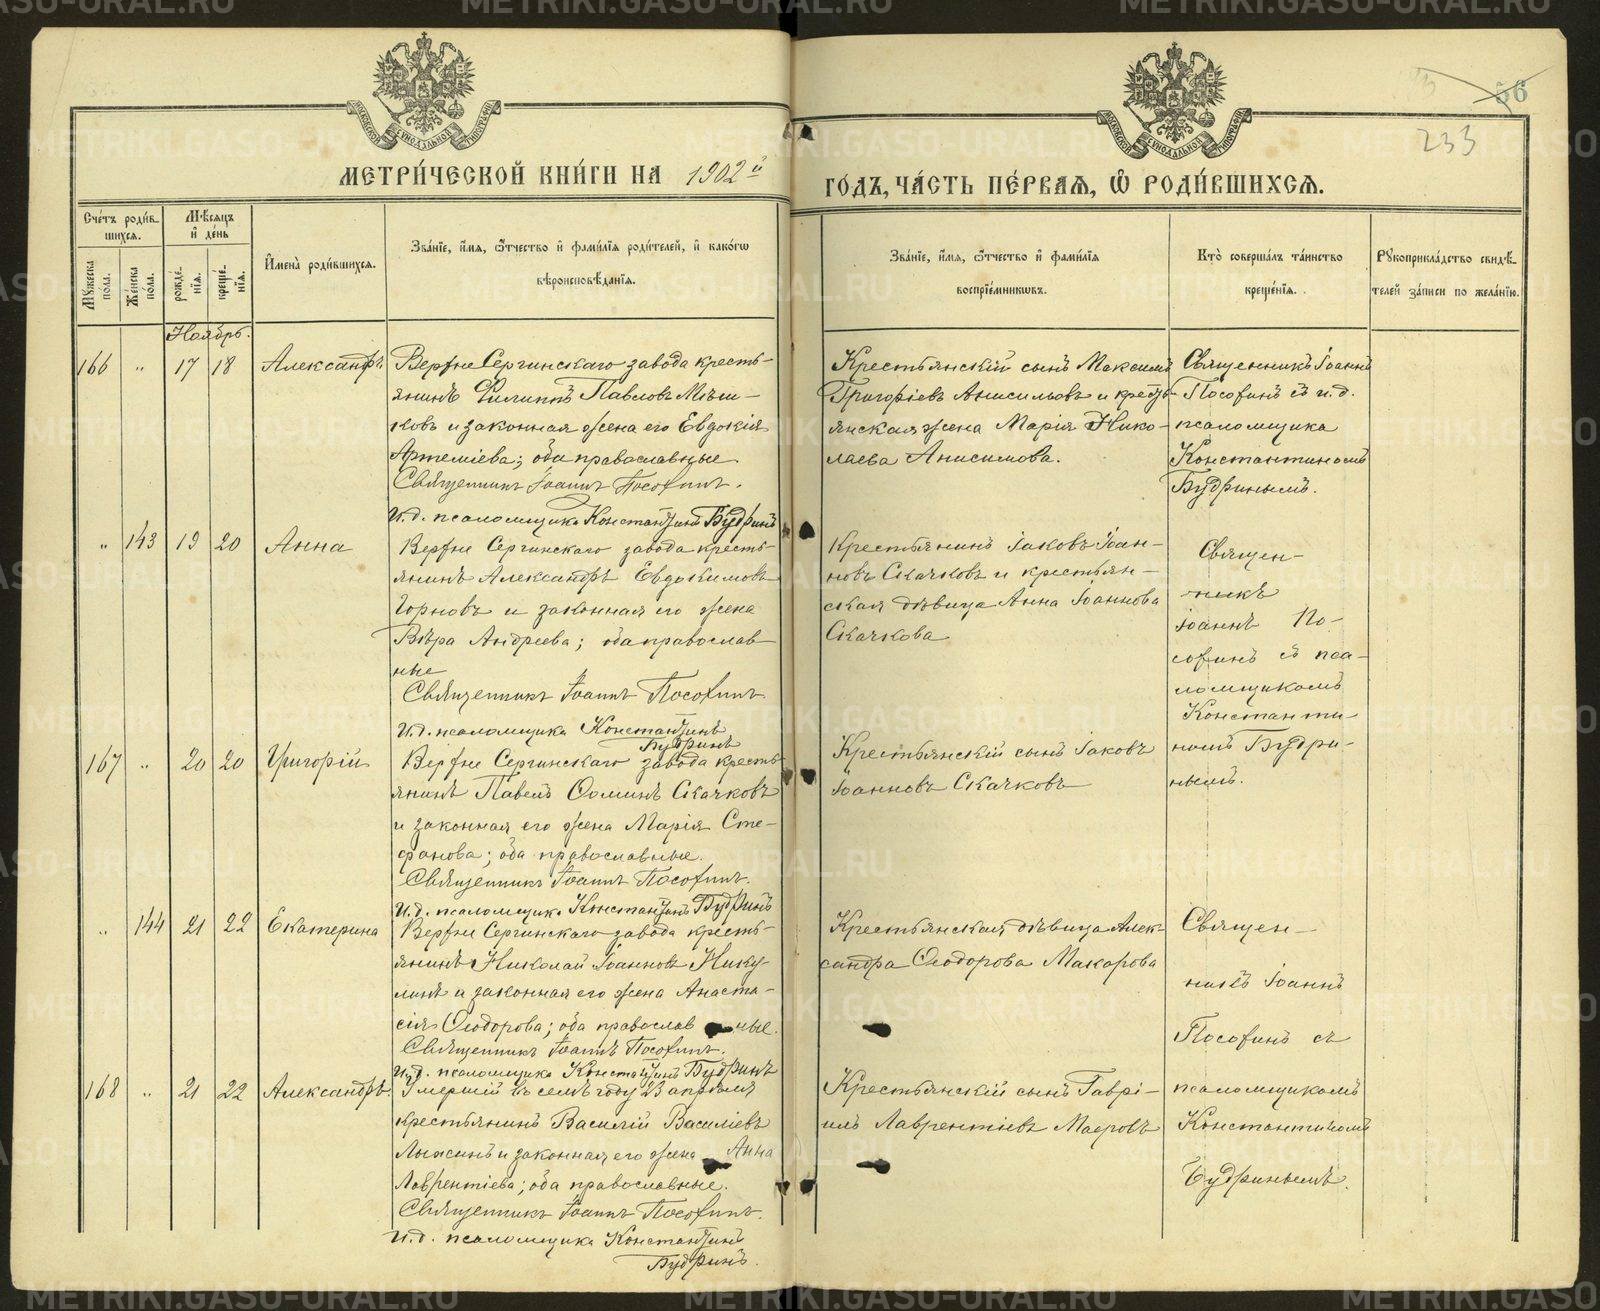 56
233
МЕТРИ́ЧЕСКОЙ КНИ́ГИ НА 1902й
ГО́ДЪ, ЧА́СТЬ ПЕ́РВАѦ, Ѽ РОДИ́ВШИХСѦ.
Сче́тъ роди́в-
шихсѧ.
Мꙋжеска по́ла.
Же́нска по́ла.
Мѣ́сѧцъ
и҆ де́нь
рожде́нїѧ.
креще́нїѧ.
И҆мена̀ роди́вшихсѧ.
Зва́нїе, и҆́мѧ, ѻ҆́тчество и҆ фами́лїѧ роди́телей, и҆ како́гѡ
вѣроисповѣ́данїѧ.
Зва́нїе, и҆́мѧ, ѻ҆́тчество и҆ фами́лїѧ
воспрїе́мникѡвъ.
Кто̀ соверша́лъ та́инство
креще́нїѧ.
Рꙋкоприкла́дство свидѣ́-
телей за́писи по жела́нїю.
Ноябрь.
166 " 17 18 Александръ
Верхне Сергинскаго завода кресть-
янинъ Филиппъ Павловъ Мѣши-
ковъ и законная жена его Евдокія
Артеміева; оба православные.
Священникъ Іоаннъ Пособинъ.
И.д. псаломщика Константинъ Будринъ
Крестьянскій сынъ Максимъ
Григоріевъ Анисимовъ и кресть-
янская жена Марія Нико-
лаева Анисимова.
Священникъ Іоаннъ
Пособинъ съ и.д.
псаломщика
Константиномъ
Будринымъ.
" 143 19 20 Анна
Верхне Сергинскаго завода кресть-
янинъ Александръ Евдокимовъ
Горновъ и законная его жена
Вѣра Андреева; оба православ-
ные
Священникъ Іоаннъ Пособинъ
И.д. псаломщика Константинъ
Будринъ
Крестьянинъ Іаковъ Іоан-
новъ Скачковъ и крестьян-
ская дѣвица Анна Іоаннова
Скачкова
Священ-
никъ
Іоаннъ По-
собинъ съ пса-
ломщикомъ
Константи-
номъ Будри-
нымъ.
167 " 20 20 Григорій
Верхне Сергинскаго завода кресть-
янинъ Павелъ Ѳоминъ Скачковъ
и законная его жена Марія Сте-
фанова; оба православные.
Священникъ Іоаннъ Пособинъ.
И.д. псаломщика Константинъ Будринъ
Крестьянскій сынъ Іаковъ
Іоанновъ Скачковъ
" 144 21 22 Екатерина
Верхне Сергинскаго завода кресть-
янинъ Николай Іоанновъ Нику-
линъ и законная его жена Анаста-
сія Ѳеодорова; оба православные.
Священникъ Іоаннъ Пособинъ.
И.д. псаломщика Константинъ Будринъ
Крестьянская дѣвица Алек-
сандра Ѳеодорова Макарова
Священ-
никъ Іоаннъ
Пособинъ съ
псаломщикомъ
Константиномъ
Будринымъ.
168 " 21 22 Александръ.
Умершій въ семъ году 23 апрѣля
крестьянинъ Василій Василіевъ
Лыжинъ и законная его жена Анна
Лаврентіева; оба православные.
Священникъ Іоаннъ Пособинъ.
И.д. псаломщика Константинъ
Будринъ.
Крестьянскій сынъ Гаврі-
илъ Лаврентіевъ Мавровъ